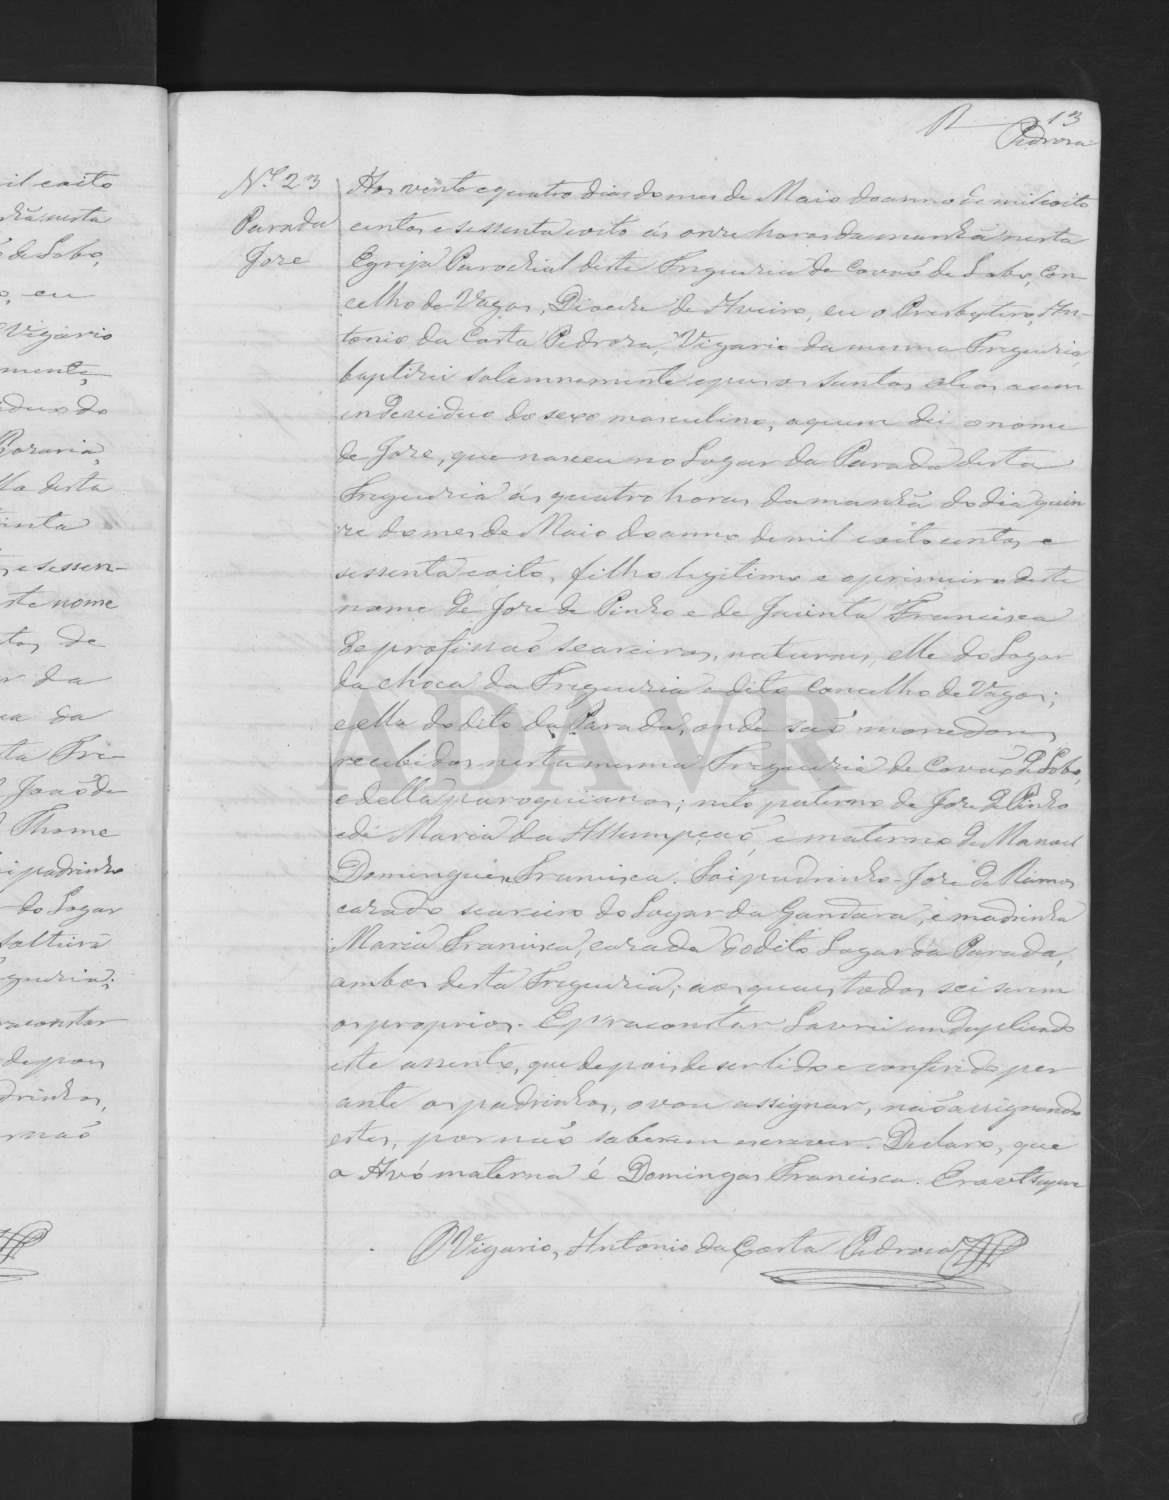 13
Pedroza
il eoito
de Lobo,
o, eu
Vigario
mente,
iduo do
Rozaria,
lla desta
inta
e sessen-
ste nome
tos, de
r da
ca da
ta Fre-
João de
Thome
i padrinho
do Logar
solteira
guezia;
raconstar
depois
drinhos,
não
N.º 23
Parada
Joze
Aos vinte e quatro dias do mes de Maio do anno de mil eoito
centos e sessenta eoito ás onze horas da manhã nesta
Egreja Parochial desta Freguezia de Covão de Lobo, Con-
celho de Vagos, Diocese de Aveiro, eu o Presbytero, An-
tonio da Costa Pedroza, Vigario da mesma Freguezia,
baptizei solemnemente epuz os santos oleos aeum
indeviduo do sexo masculino, aquem dei o nome
de Joze, que nasceu no Logar da Parada desta
Freguezia ás quatro horas da manhã do dia quin
ze do mes de Maio do anno de mil eoito centos e
sessenta eoito, filho legitimo e oprimeiro deste
nome de Joze de Pinho e de Jacinta Francisca
de profissaõ seareiros, naturaes, elle do Logar
da choca da Freguezia edito Concelho de Vagos;
eella do dito da Parada, onde saõ moradores,
recebidos nesta mesma Freguezia de Covão de Lobo,
edella paroquianos; neto paterno de Joze de Pinho
ede Maria da Assumpçaõ, e materno de Manoel
Domingues Francisca. Foi padrinho Joze de Ramos
cazado seareiro do Logar da Gandara, e madrinha
Maria Francisca, cazada dodito Logar da Parada,
ambos desta Freguezia; aos quaes todos sei serem
os proprios. Epraconstar Lavrei em Duplicado
este assento, que depois de ser lido e conferido per
ante os padrinhos, o vou assignar, naõ assignando
estes, por naõ saberem escrever. Declaro, que
a Avó materna é Domingas Francisca. Era ut supra
O Vigario, Antonio da Costa Pedroza
ADAVR